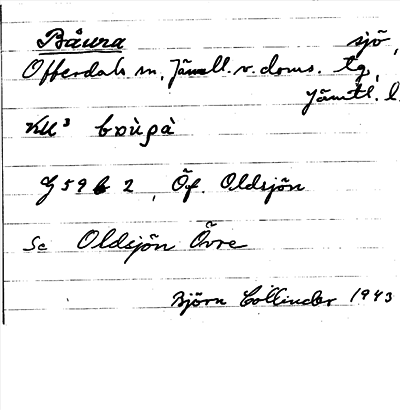 Båura sjö,
Offerdals sn, Jämtl. v. doms. tg,
Jämtl. l.
KU³ bɒùρà
J 59 b 2, Öf. Oldsjön
Se Oldsjön Övre
Björn Collinder 1943